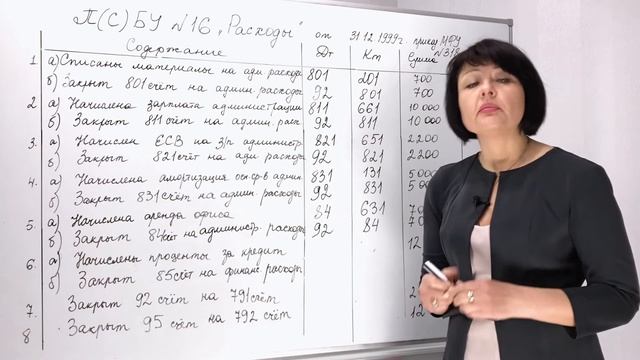 П(С)БУ №16 "Расходы" от 31.12.1999г. приказ МФУ №318
Содержание Дт Кт Сумма
1. а) Списаны материалы на адм. расходы 801 201 700
б) Закрыт 801 счёт на админ. расходы 92 801 700
2. а) Начислена зарплата администрации 811 661 10 000
б) Закрыт 811 счёт на админ. расх. 92 811 10 000
3. а) Начислен ЕСВ на з/п администр. 821 651 2200
б) Закрыт 821 счёт на ад. расходы 92 821 2200
4. а) Начислена амортизация осн.ф-в админ. 831 131 5000
б) Закрыт 831 счёт на админ. расходы 92 831 5
5. а) Начислена аренда офиса 84 631 70
б) Закрыт 84 счёт на администр. расходы 92 84 7
6. а) Начислены проценты за кредит 12
б) Закрыт 85 счёт на финанс. расходы
7. Закрыт 92 счёт на 791 счёт 2
8 Закрыт 95 счёт на 792 счёт 12